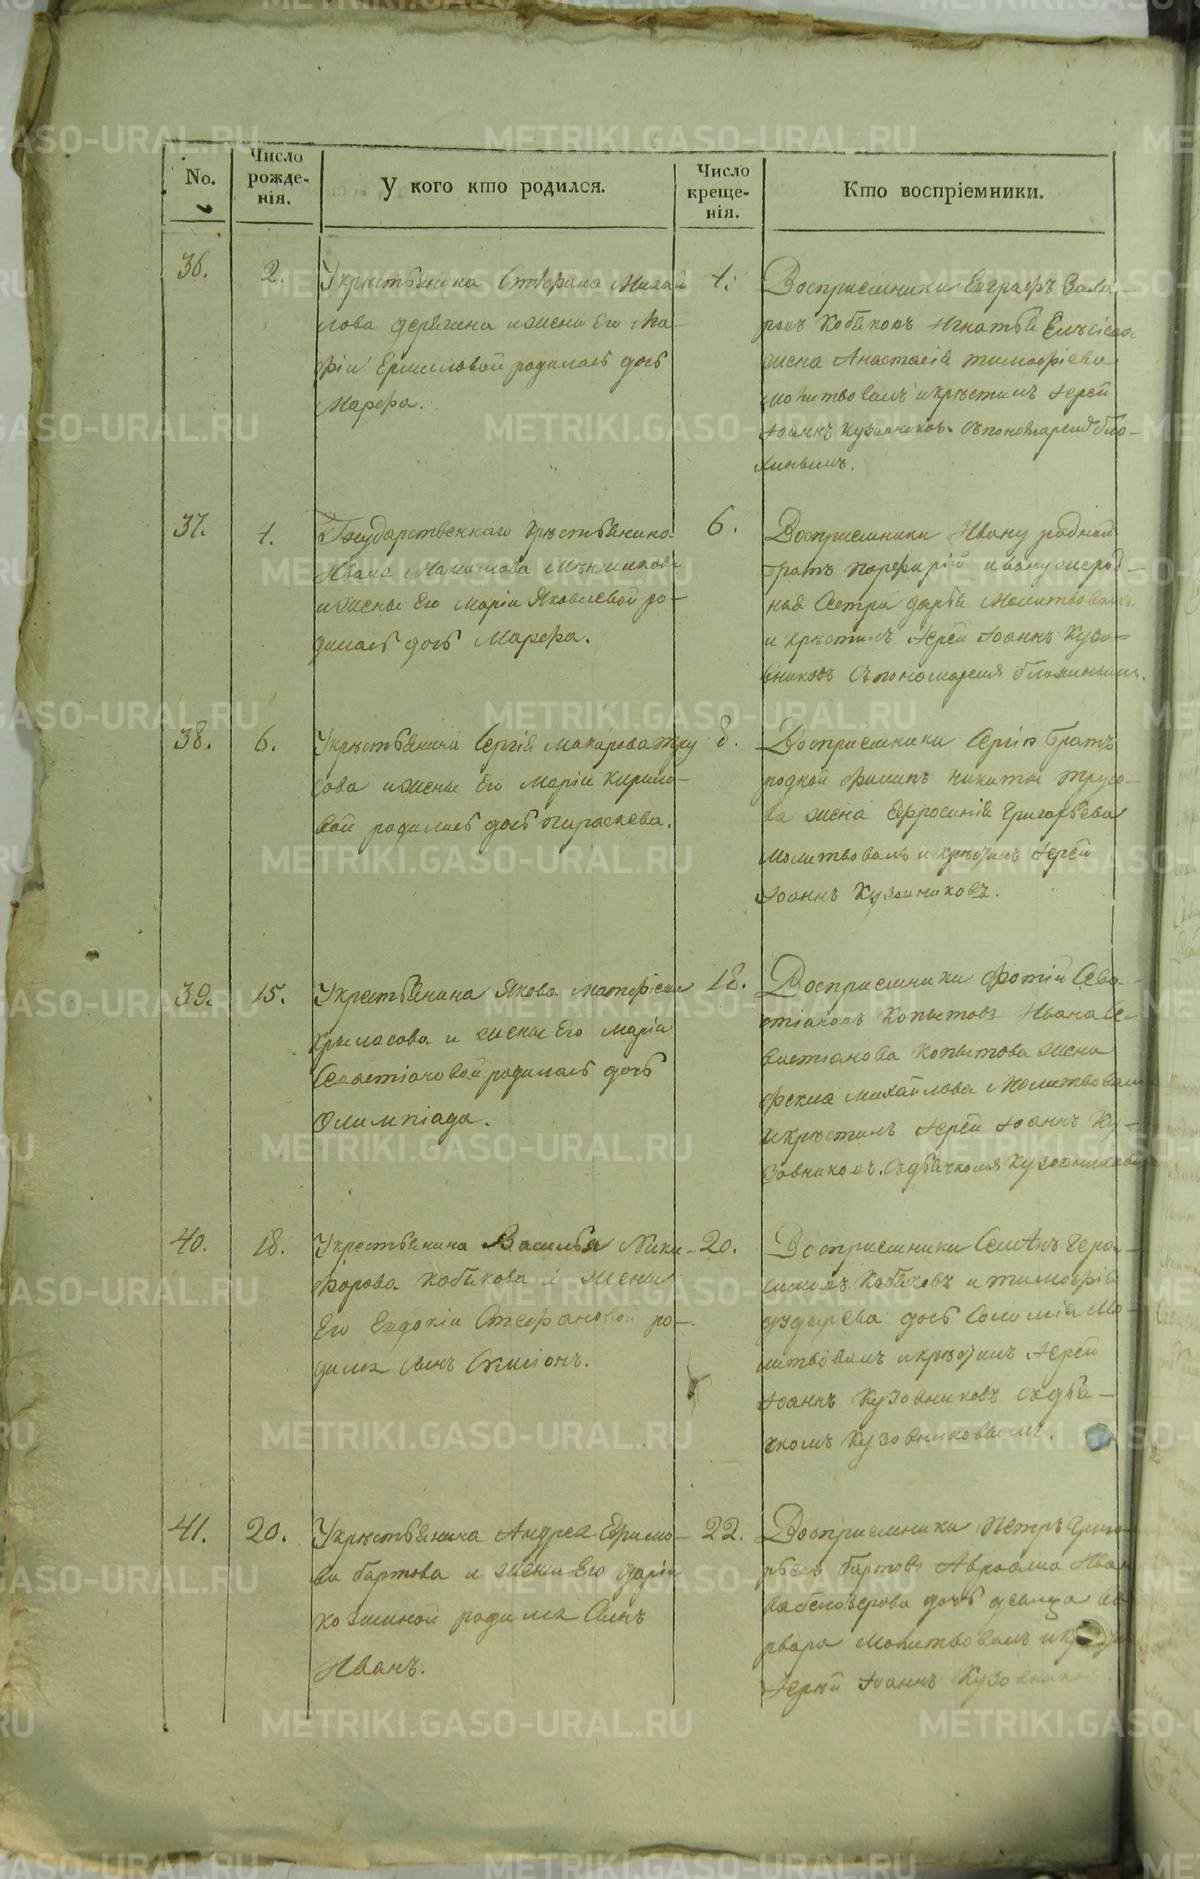 No.
Число рожде-нія.
У кого кто родился.
Число креще-нія.
Кто воспріемники.
36.
2.
У крѣстьянина Стефана Михаи
лова и жены Его Ма-
Ермиловой родилась дочь
Марфа.
4.
Восприемники Евграфъ Заха-
ровъ Кобяковъ Игнатья
жена Анастасія тимофѣева
молитвовалъ и крѣстилъ Іерей
Іоаннъ Кузовниковъ съ пономаремъ бло-
хинымъ.
37.
4.
Государственнаго крѣстьянина
Ивана
и жены Его Маріи Яковлевой ро-
дилась дочь Марфа.
6.
Восприемники Ивану родной
братъ порфирій и
ная Сестра дарья Молитвовалъ
и крѣстилъ Іерей Іоаннъ Кузо-
вниковъ Съ пономаремъ блохинымъ.
38.
6.
У крѣстьянина Сергія макарова тру
сова и жены Его Маріи кирило-
вой родилась дочь параскева.
8.
Восприемники Сергію братъ
родной филипъ никиты трусо-
ва жена Ефросинія Григорьева
Молитвовалъ и крѣстилъ Іерей
Іоаннъ Кузовниковъ.
39.
15.
У крестьянина Якова матфѣева
крыласова и жены Его маріи
Севастіановой родилась дочь
Олимпіада.
18.
Восприемники фотій Сева-
стіановъ Копытовъ Ивана Се-
вастіанова копытова жена
фекла михайлова Молитвовалъ
и крѣстилъ Іерей Іоаннъ Ку-
зовниковъ. Съ дьячкомъ Кузовниковым
40.
18.
У крестьянина Василья Ники-
форова кобякова и жены
Его Евдокіи Стефановой ро-
дился сынъ Симіонъ.
20.
Восприемники Семенъ Гера-
симовъ Кобяковъ и тимофѣя
дочь Соломія Мо-
литвовалъ и крѣстилъ Іерей
Іоаннъ Кузовниковъ съ дья-
чкомъ Кузовниковымъ.
41.
20.
У крѣстьянина Андрея Ефимо-
ва бартова и жены Его дарьи
козминой родился Сынъ
Иванъ.
22.
Восприемники Петръ Григо-
рьевъ бартовъ Авраама Ива
ва белозерова дочь девица ва
рвара Молитвовалъ и
Іерей Іоаннъ Кузовник
METRIKI.GASO-URAL.RU